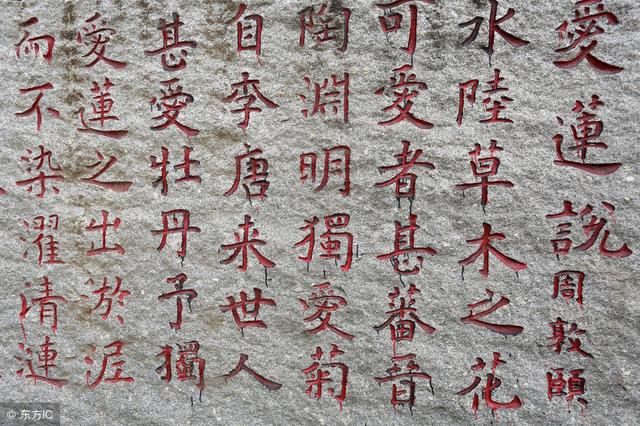 愛蓮說周敦頤
水陸草木之花
可愛者甚蕃晉
陶淵明獨愛菊
自李唐来世人
甚愛牡丹予獨
愛蓮之出淤泥
而不染濯清漣
© 东方IC